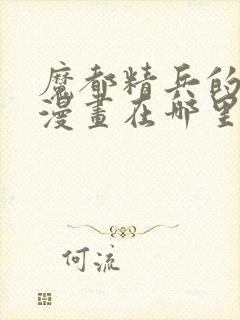 魔都精兵的
漫畫在哪里
何流